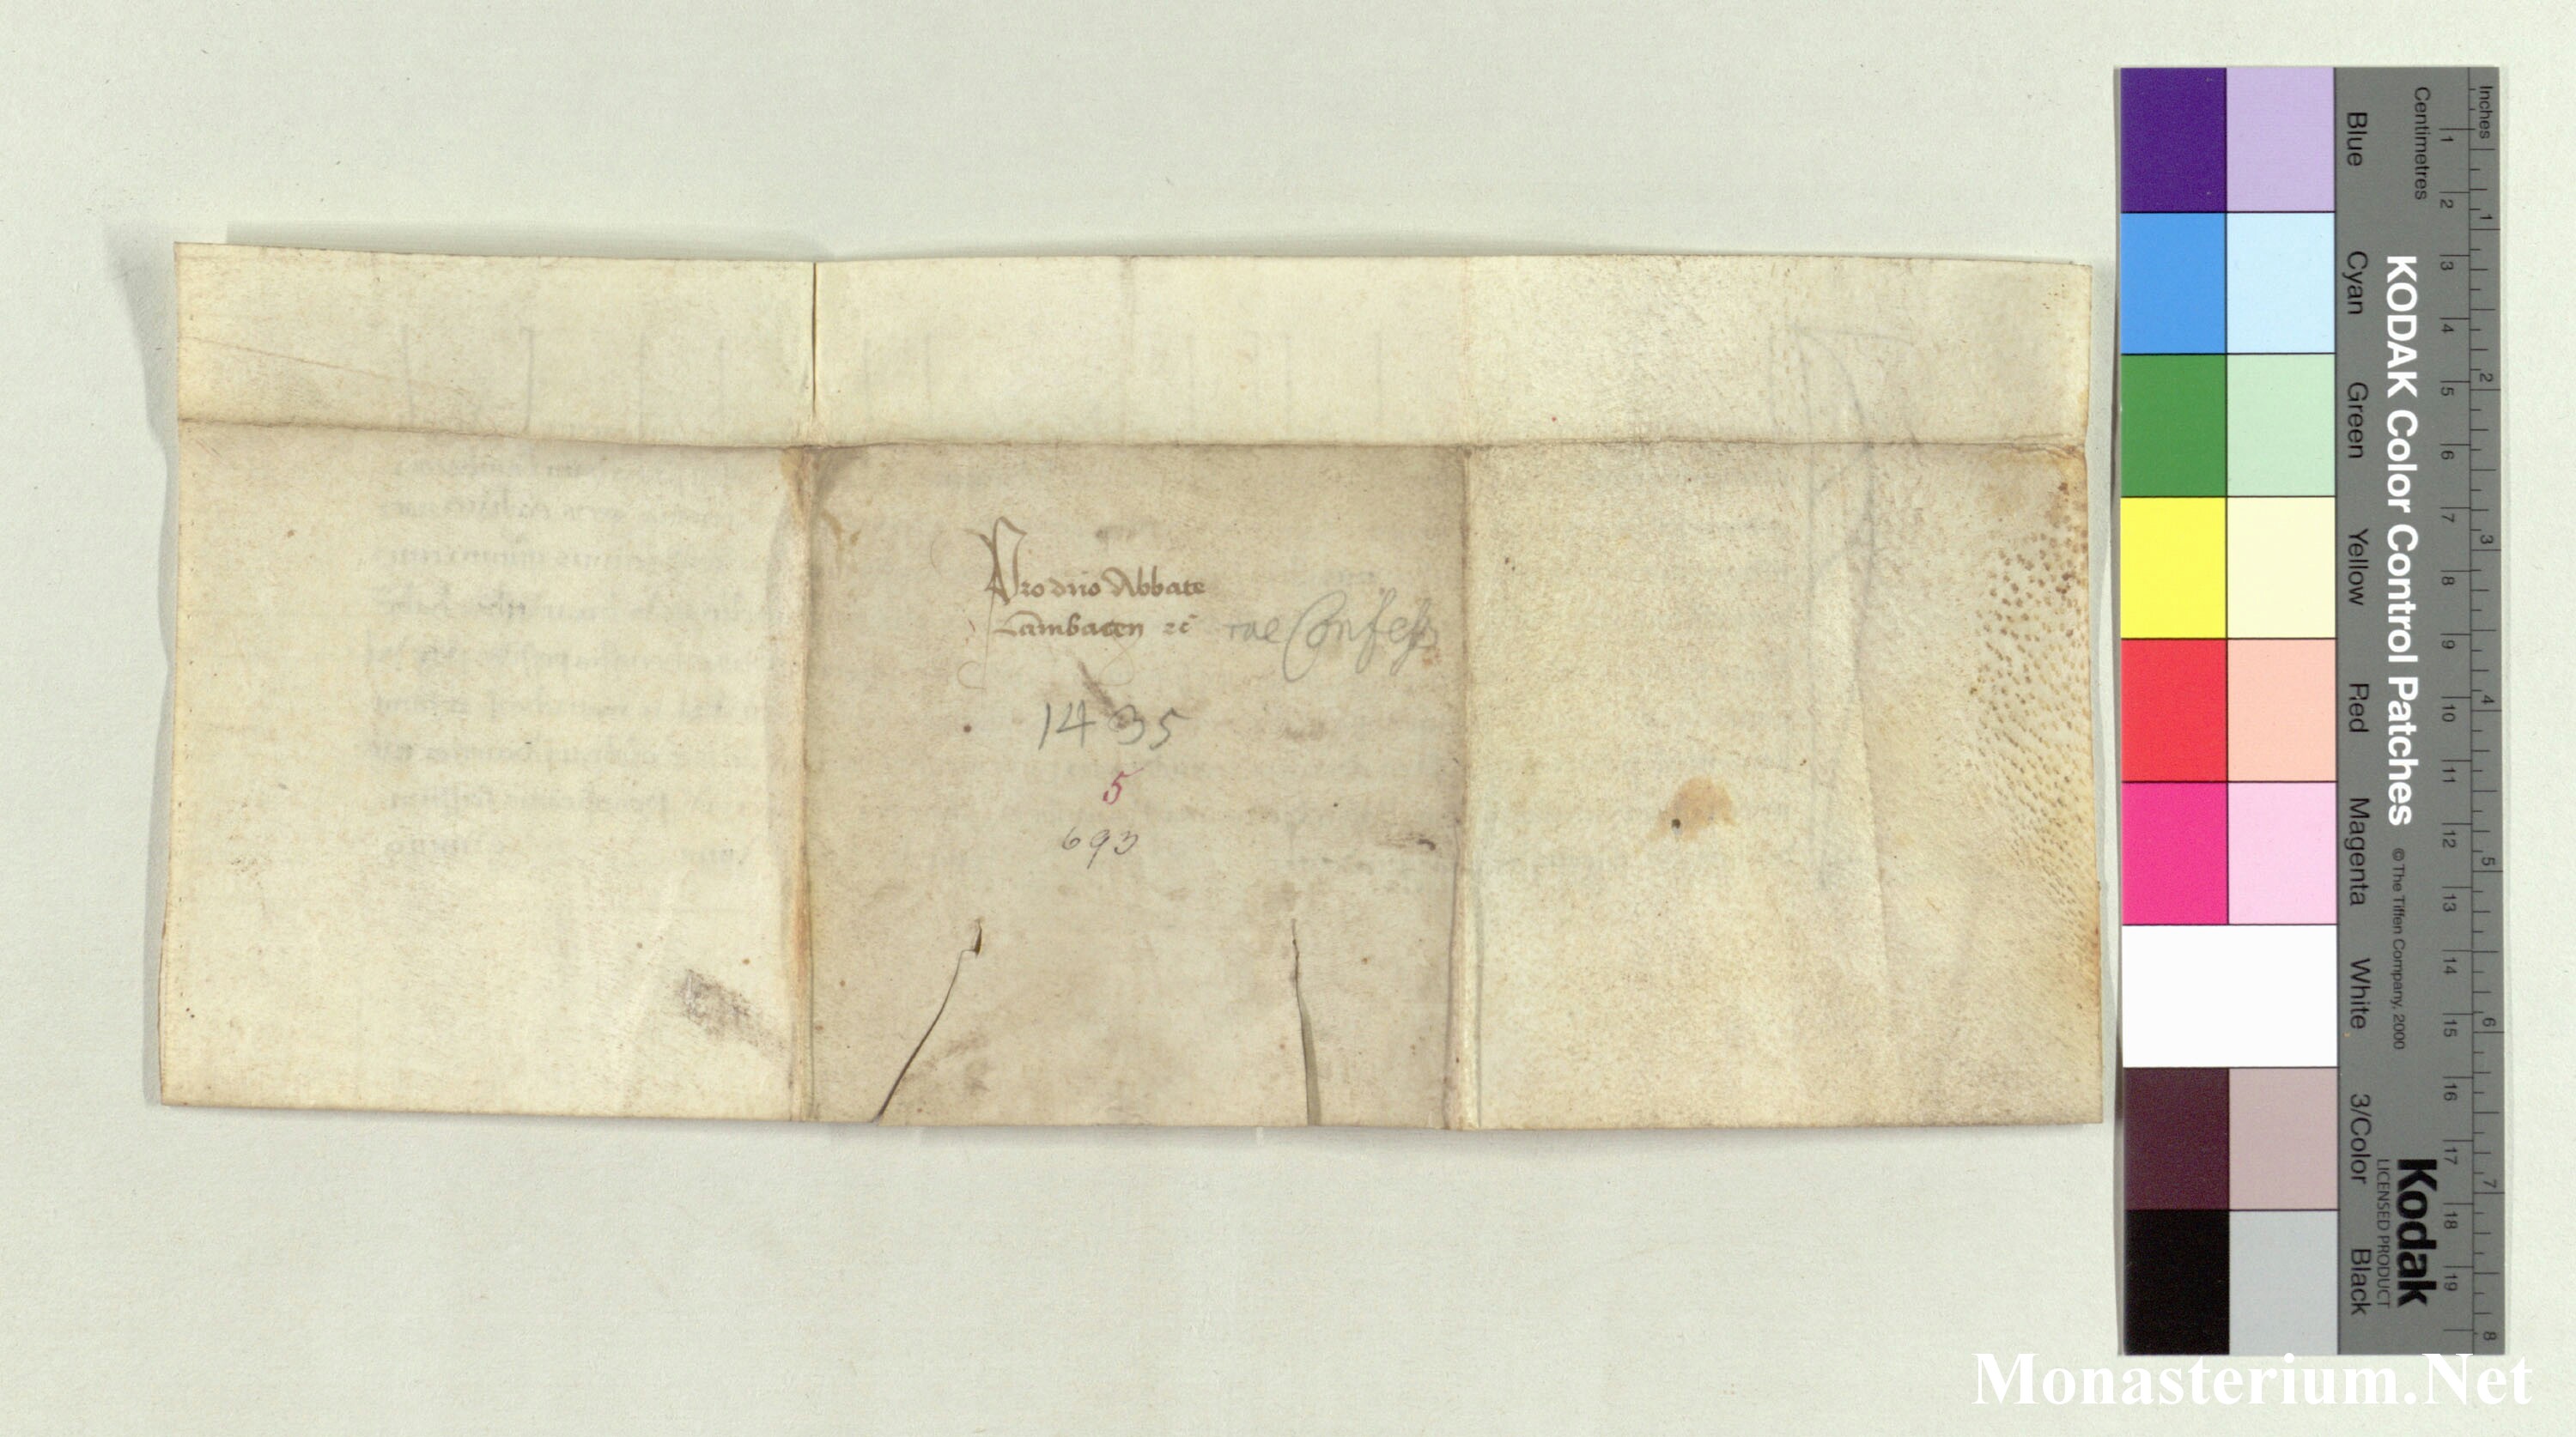 Pro dno Abbate
Lambacen ꝛc̃ rae Confess
1435
5
693
Inches
Centimetres
KODAK Color Control Patches
© The Tiffen Company, 2000
Kodak
LICENSED PRODUCT
Blue
Cyan
Green
Yellow
Red
Magenta
White
3/Color
Black
1 2 3 4 5 6 7 8 9 10 11 12 13 14 15 16 17 18 19
1 2 3 4 5 6 7 8
Monasterium.Net